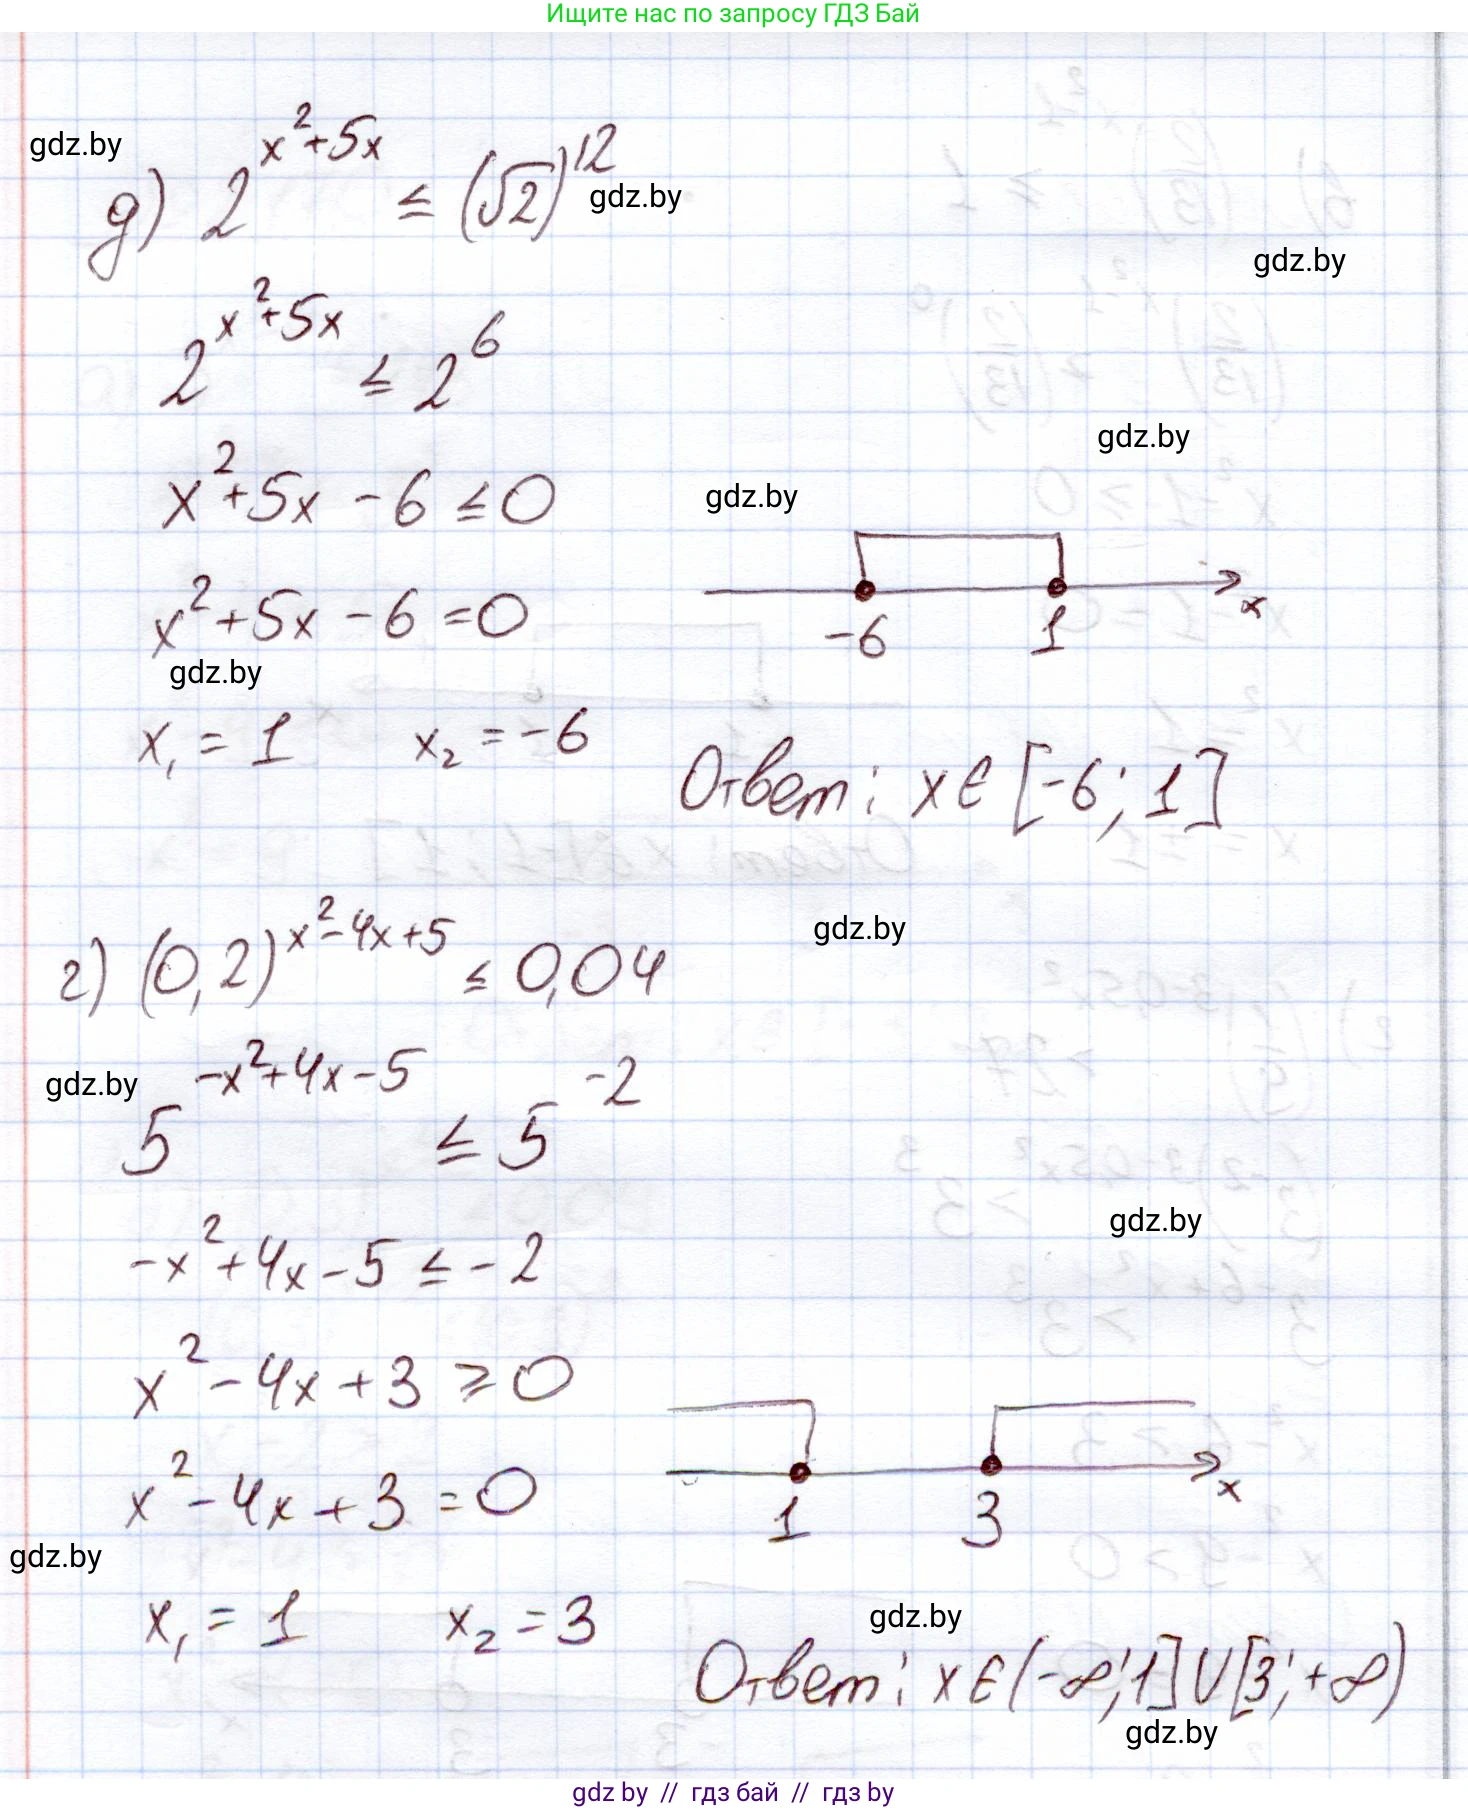 Ищите нас по запросу ГДЗ Бай
gdz.by
д) 2^{x²+5x} ≤ (√2)^{12}
gdz.by
gdz.by
2^{x²+5x} ≤ 2^6
gdz.by
x²+5x-6≤0
gdz.by
x²+5x-6=0
x
-6 1
gdz.by
x₁=1 x₂=-6
Ответ: x∈[-6; 1]
г) (0,2)^{x²-4x+5} ≤ 0,04
gdz.by
gdz.by
5^{-x²+4x-5} ≤ 5^{-2}
gdz.by
-x²+4x-5≤-2
x²-4x+3≥0
x²-4x+3=0
x
1 3
gdz.by
x₁=1 x₂=3
gdz.by
Ответ: x∈(-∞;1]∪[3;+∞)
gdz.by
gdz by // гдз бай // гдз by